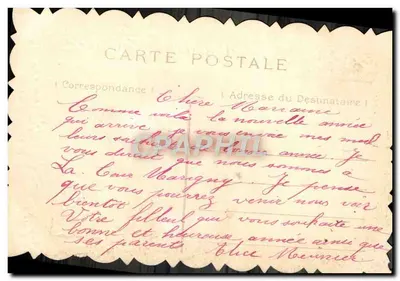 CARTE POSTALE
( Correspondance ) ( Adresse du Destinataire )
Chère Marraine
Comme voilà la nouvelle année
qui arrive je vous envoie mes meil
leurs année. Je
vous dirai que nous sommes à
La Tour Marigny. Je pense
que vous pourrez venir nous voir
bientôt
Votre filleul qui vous souhaite une
bonne et heureuse année ainsi que
ses parents Alice Meunier